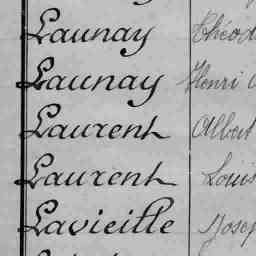 Launay Théod
Launay Henri
Laurent Albert
Laurent Louis
Lavieille Josep